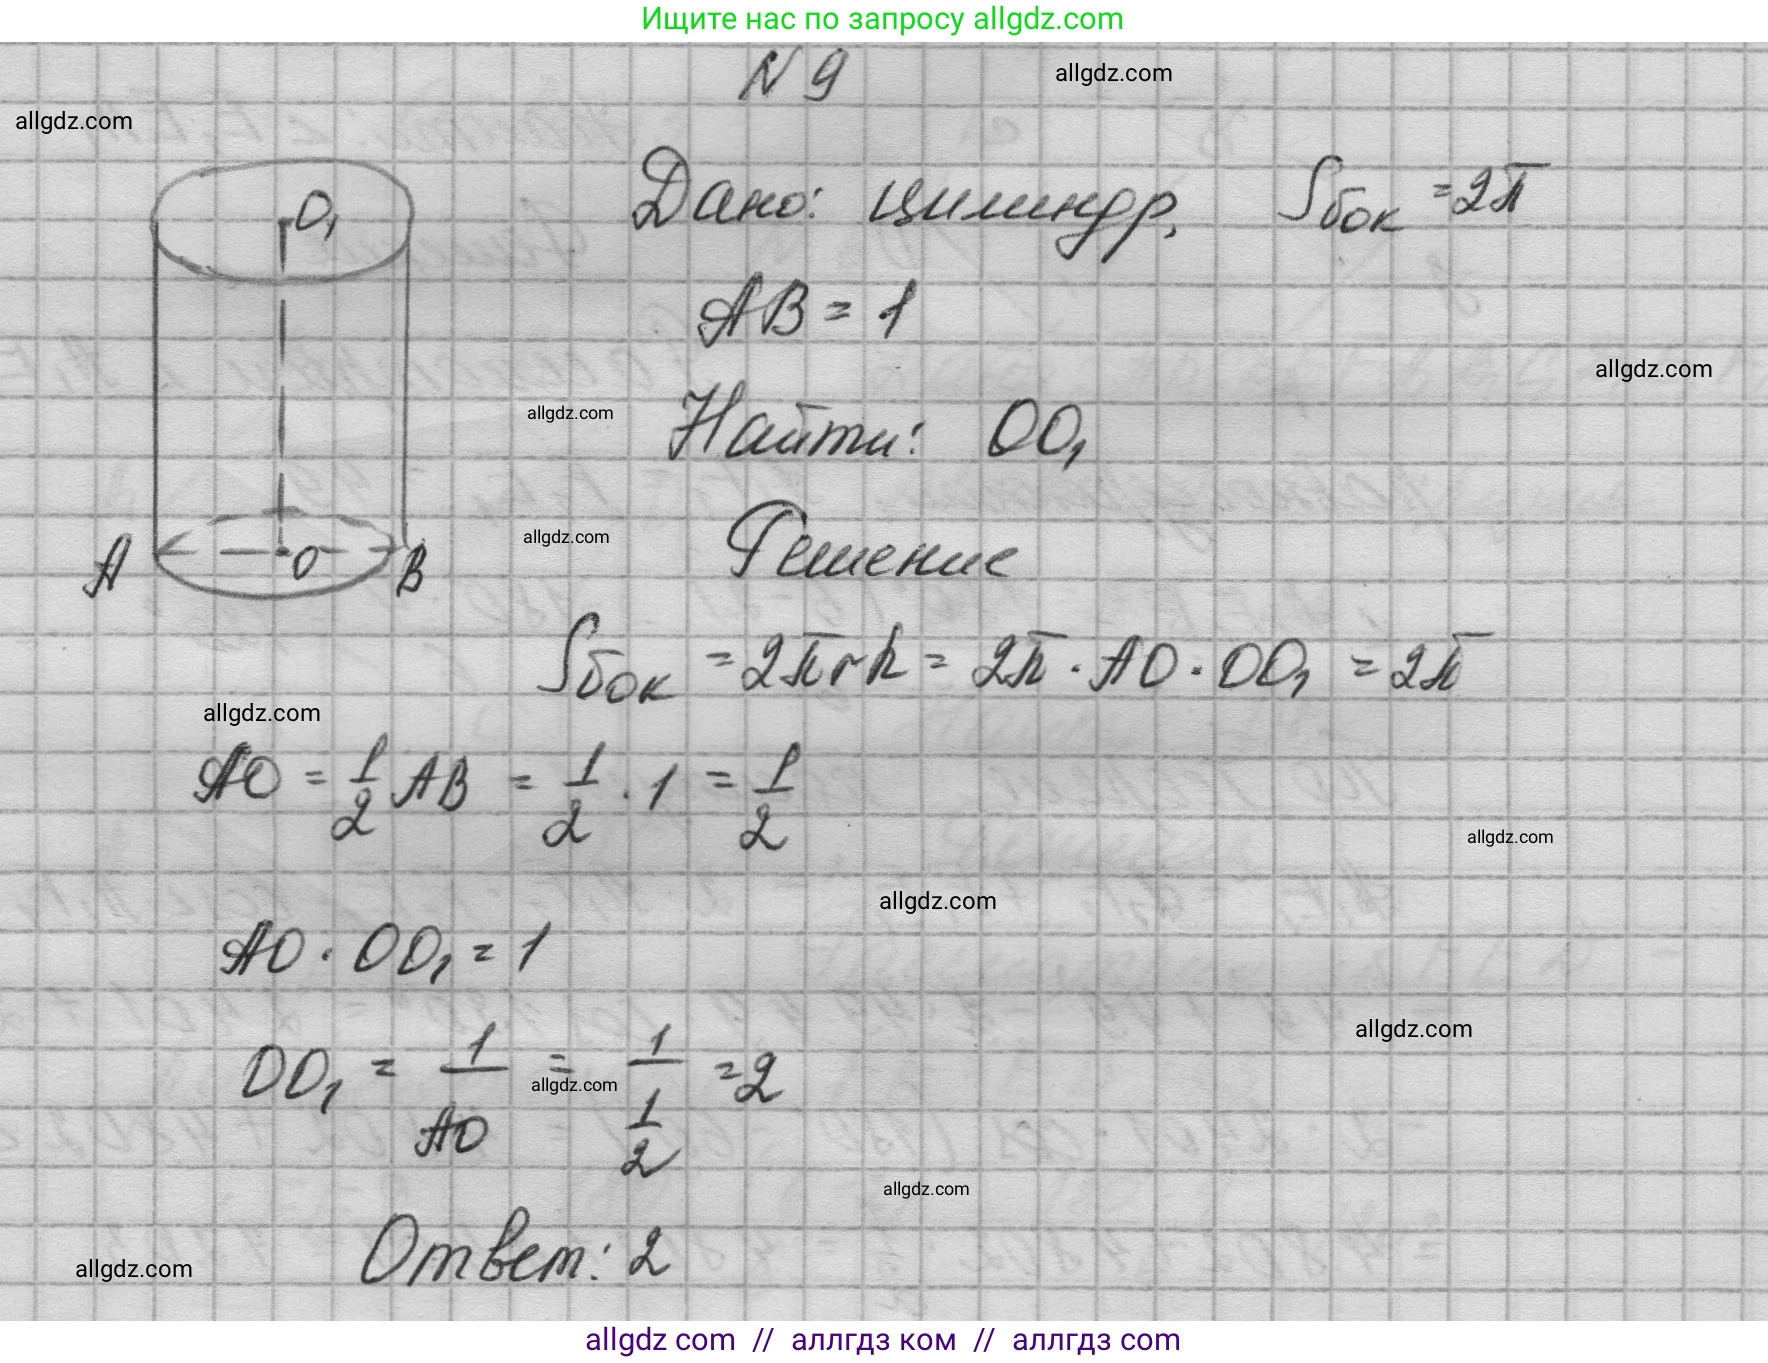 Ищите нас по запросу allgdz.com
N 9
allgdz.com
allgdz.com
O₁
Дано: цилиндр, Sбок = 2π
AB = 1
allgdz.com
allgdz.com
Найти: OO₁
allgdz.com
Решение
A O B
Sбок = 2πrh = 2π · AO · OO₁ = 2π
allgdz.com
AO = 1/2 AB = 1/2 · 1 = 1/2
allgdz.com
allgdz.com
AO · OO₁ = 1
allgdz.com
OO₁ = 1/AO = 1/(1/2) = 2
allgdz.com
allgdz.com
Ответ: 2
allgdz.com
allgdz com // аллгдз ком // аллгдз com